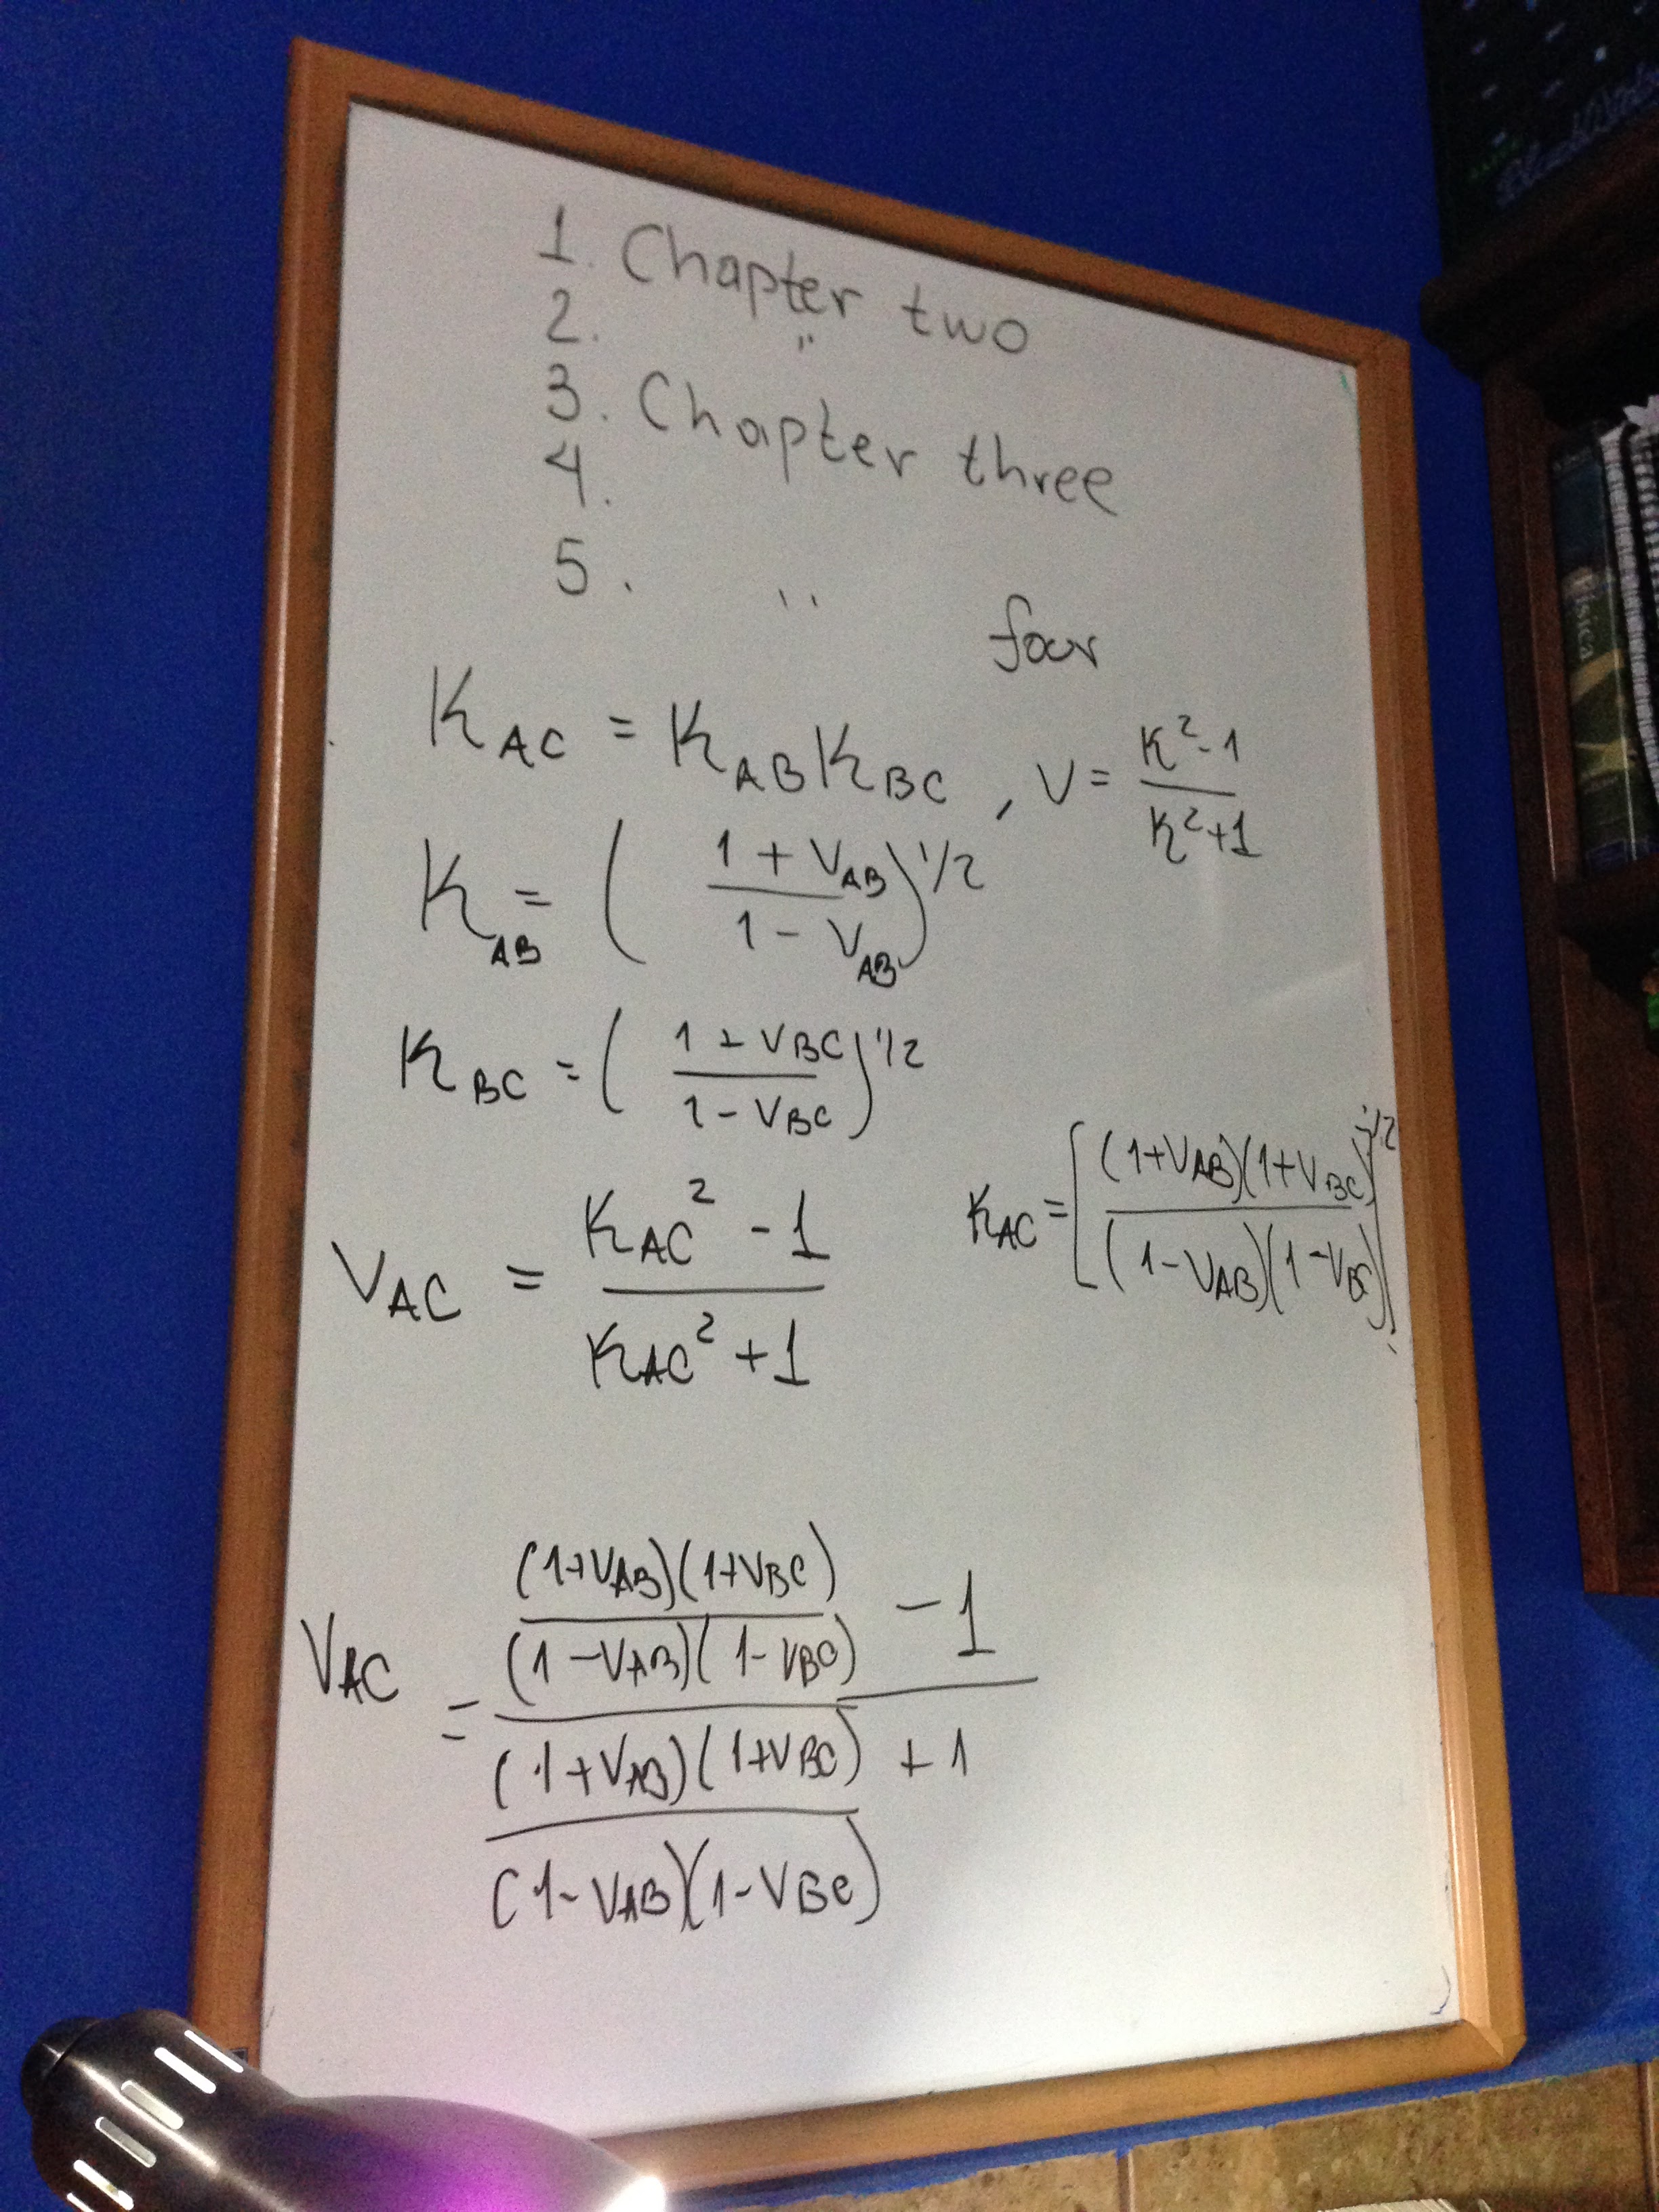 1. Chapter two
2. "
3. Chapter three
4.
5. " four
K_AC = K_AB K_BC , V = (K²-1)/(K²+1)
K_AB = ((1 + V_AB)/(1 - V_AB))^1/2
K_BC = ((1 + V_BC)/(1 - V_BC))^1/2
K_AC = [(1+V_AB)(1+V_BC)/(1-V_AB)(1-V_BC)]^1/2
V_AC = (K_AC² - 1)/(K_AC² + 1)
V_AC = ((1+V_AB)(1+V_BC)/(1-V_AB)(1-V_BC) - 1)/((1+V_AB)(1+V_BC)/(1-V_AB)(1-V_BC) + 1)
Física